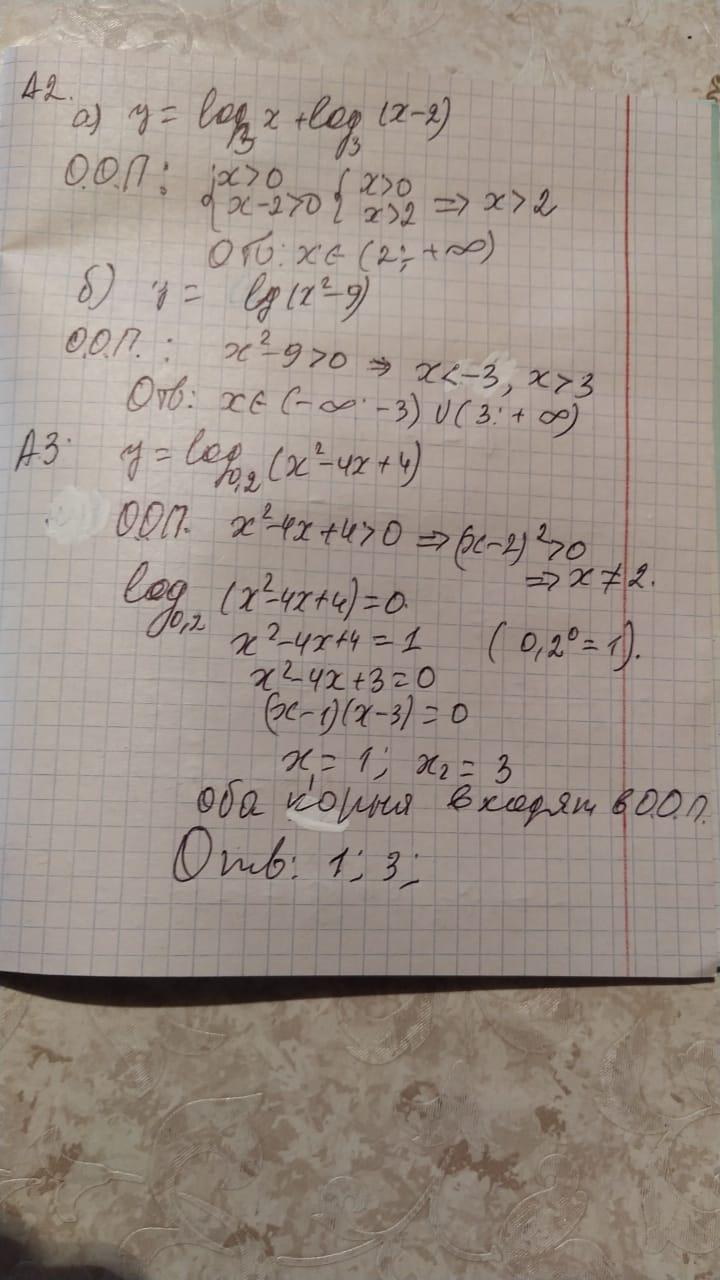 А2.
а) y = log₃ x + log₃ (x-2)
О.О.П: { x>0 { x>0
{ x-2>0 { x>2 => x>2
Отв: x∈ (2; +∞)
б) y = lg(x²-9)
О.О.П. : x²-9>0 => x<-3, x>3
Отв: x∈ (-∞; -3) ∪ (3; +∞)
А3. y = log₀,₂ (x²-4x+4)
О.О.П. x²-4x+4>0 => (x-2)²>0
=> x≠2.
log₀,₂ (x²-4x+4)=0.
x²-4x+4=1 ( 0,2⁰=1).
x²-4x+3=0
(x-1)(x-3)=0
x₁=1; x₂=3
оба корня входят в О.О.П.
Отв: 1; 3;